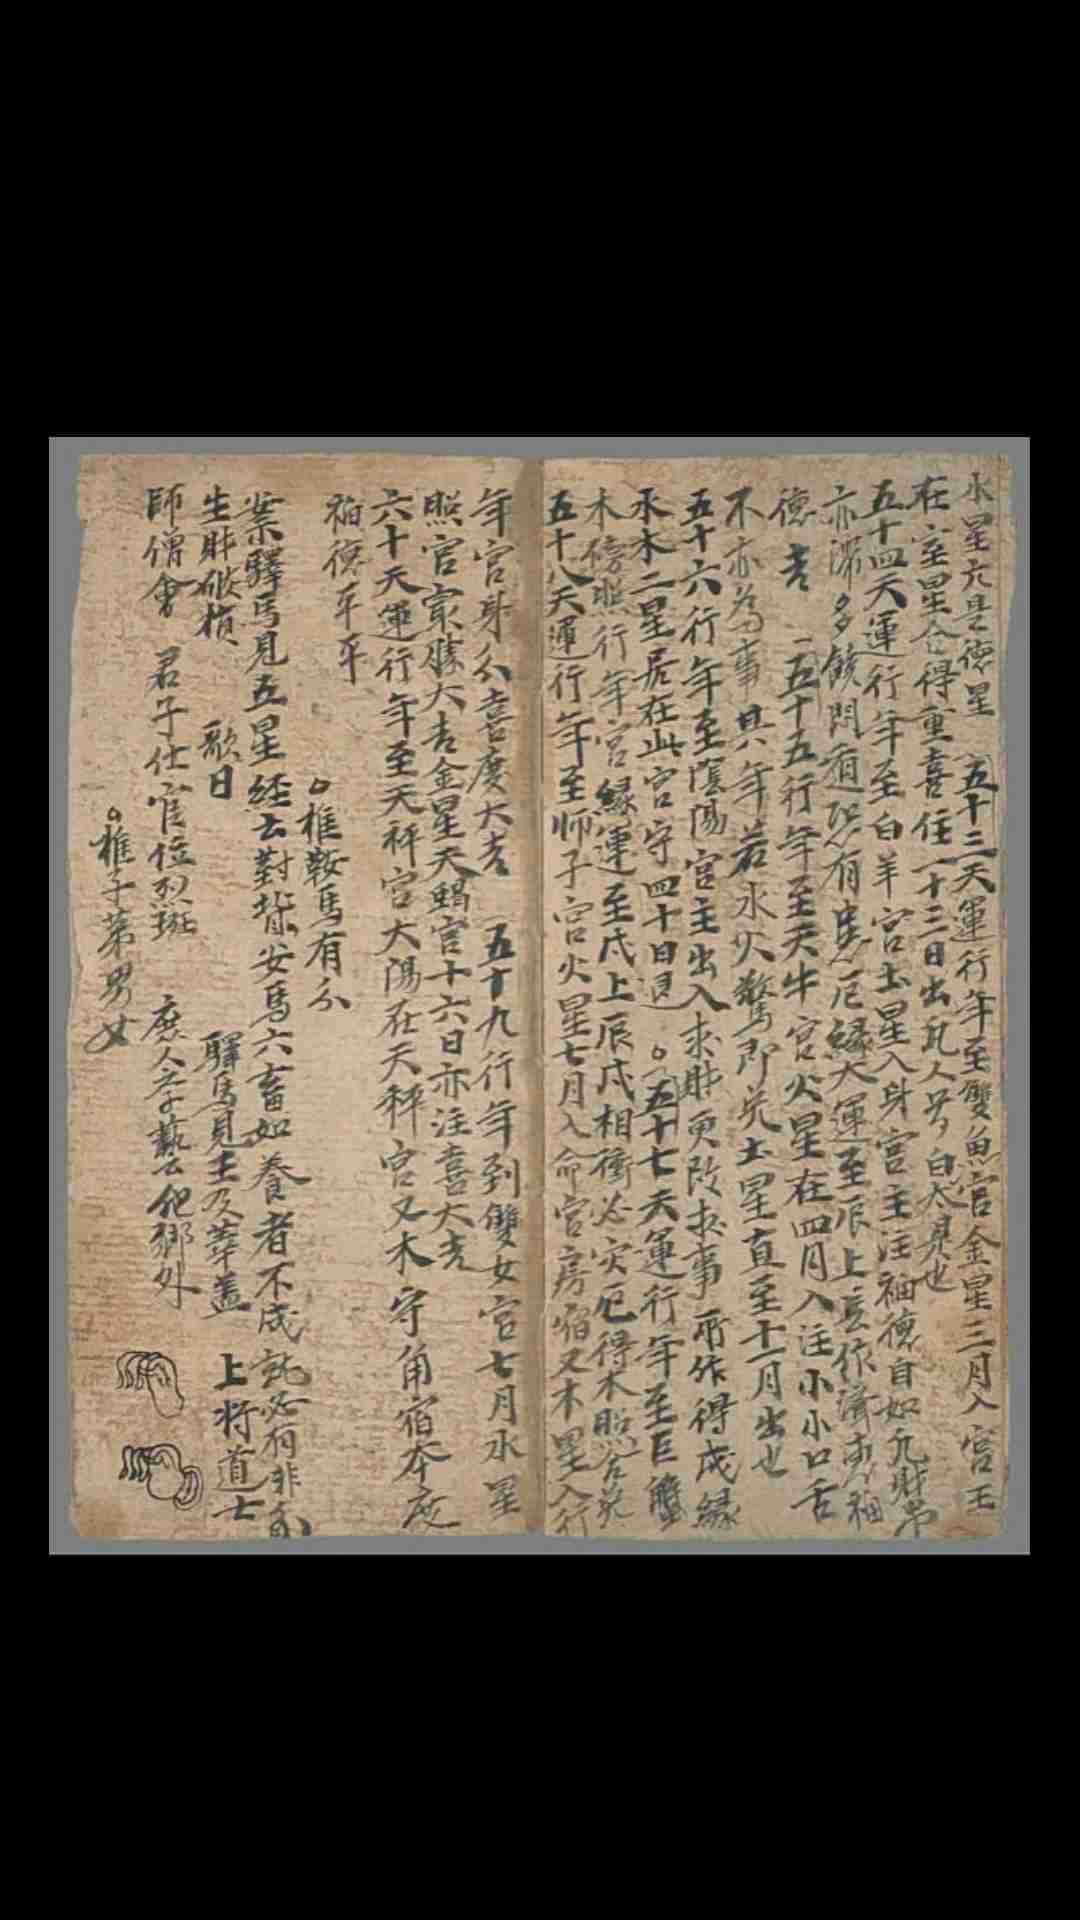 水星亢是德星 五十三天運行年至雙魚宮金星三月入宮王
在室星合得重喜住一十三日出凡人皆白太見也
五十四天運行年至白羊宮土星入身宮主注福德自如凡財帛
亦滯多饒悶有厄緣大運至辰上福
德吉 五十五行年至天牛宮火星在四月入注小小口舌
不亦為事其年若水火驚即災土星直至十一月出也
五十六行年至陰陽宮主出入求財更改求事所作得成緣
水木二星居在此宮守四十日退 五十七天運行年至巨蟹
木傍照行年宮緣運至戌上辰戌相衝必灾厄得木照
五十八天運行年至师子宮火星七月入命宮房宿又木星入行
年宮身分喜慶大吉 五十九行年到雙女宮七月水星
照宮最勝大吉金星天蝎宮十六日亦注喜大吉
六十天運行年至天秤宮大陽在天秤宮又木守角宿本度
福德平平
推鞍馬有分
案驛馬見五星經云對背安馬六畜如養者不成就必有非
生財破損 歌曰 驛馬見土及華盖 上將道士
師僧會 君子仕官位烈班 庶人學藝公他鄉外
推子弟男女